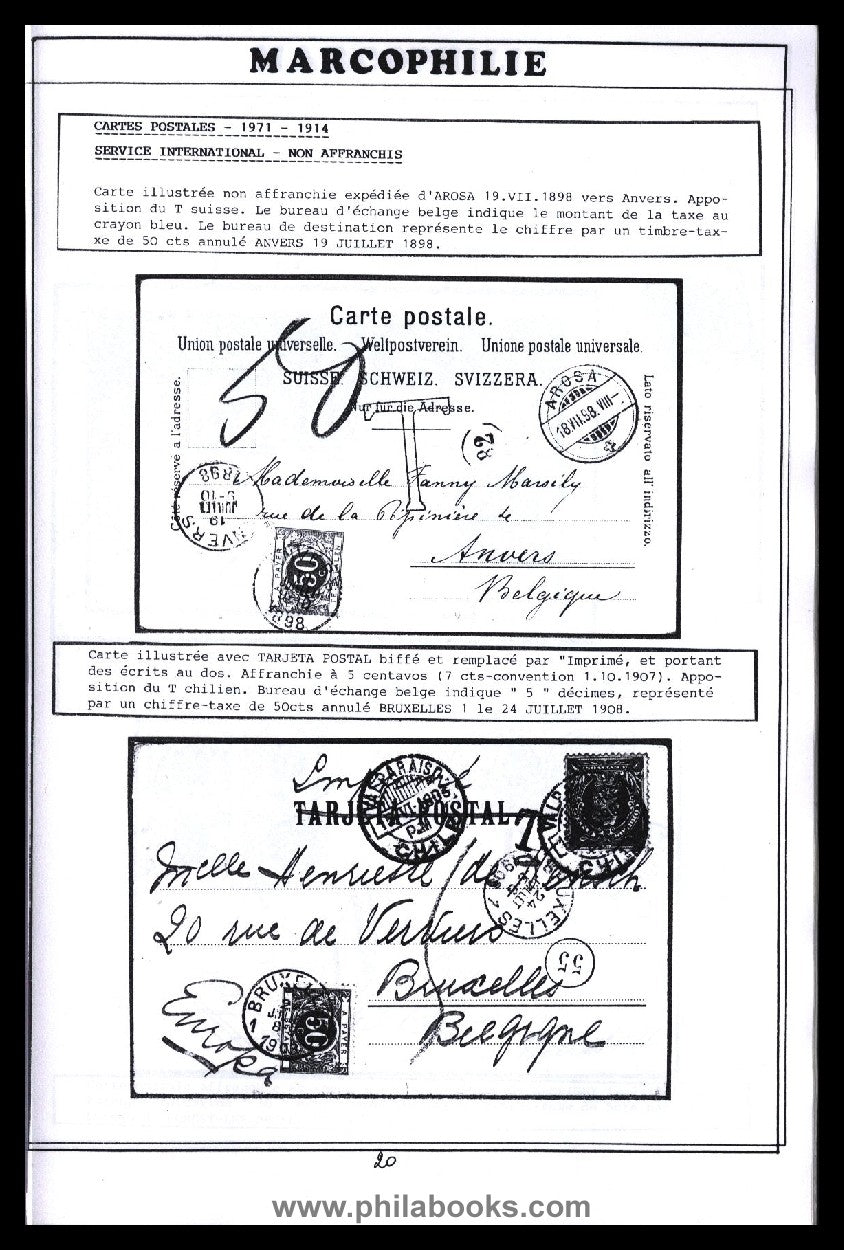 MARCOPHILIE
CARTES POSTALES - 1971 - 1914
SERVICE INTERNATIONAL - NON AFFRANCHIS
Carte illustrée non affranchie expédiée d'AROSA 19.VII.1898 vers Anvers. Appo-
sition du T suisse. Le bureau d'échange belge indique le montant de la taxe au
crayon bleu. Le bureau de destination représente le chiffre par un timbre-tax-
xe de 50 cts annulé ANVERS 19 JUILLET 1898.
Carte postale.
Union postale universelle. – Weltpostverein. Unione postale universale.
SUISSE. SCHWEIZ. SVIZZERA.
Nur für die Adresse.
50
T
Côté réservé à l'adresse.
Lato riservato all'indirizzo.
AROSA
18.VII.98.VIII–
28
Mademoiselle Fanny Marsily
rue de la Pépinière
Anvers
Belgique
ANVERS
19
JUIL
5-10
1898
A PAYER
50
898
Carte illustrée avec TARJETA POSTAL biffé et remplacé par "Imprimé, et portant
des écrits au dos. Affranchie à 5 centavos (7 cts-convention 1.10.1907). Appo-
sition du T chilien. Bureau d'échange belge indique " 5 " décimes, représenté
par un chiffre-taxe de 50cts annulé BRUXELLES 1 le 24 JUILLET 1908.
TARJETA POSTAL
VALPARAISO
CHILE
T
Melle Henriette de
BRUXELLES 1
24
20 rue de
55
Bruxelles
Belgique
Europa
BRUXEL
1
1908
A PAYER
50
20
www.philabooks.com